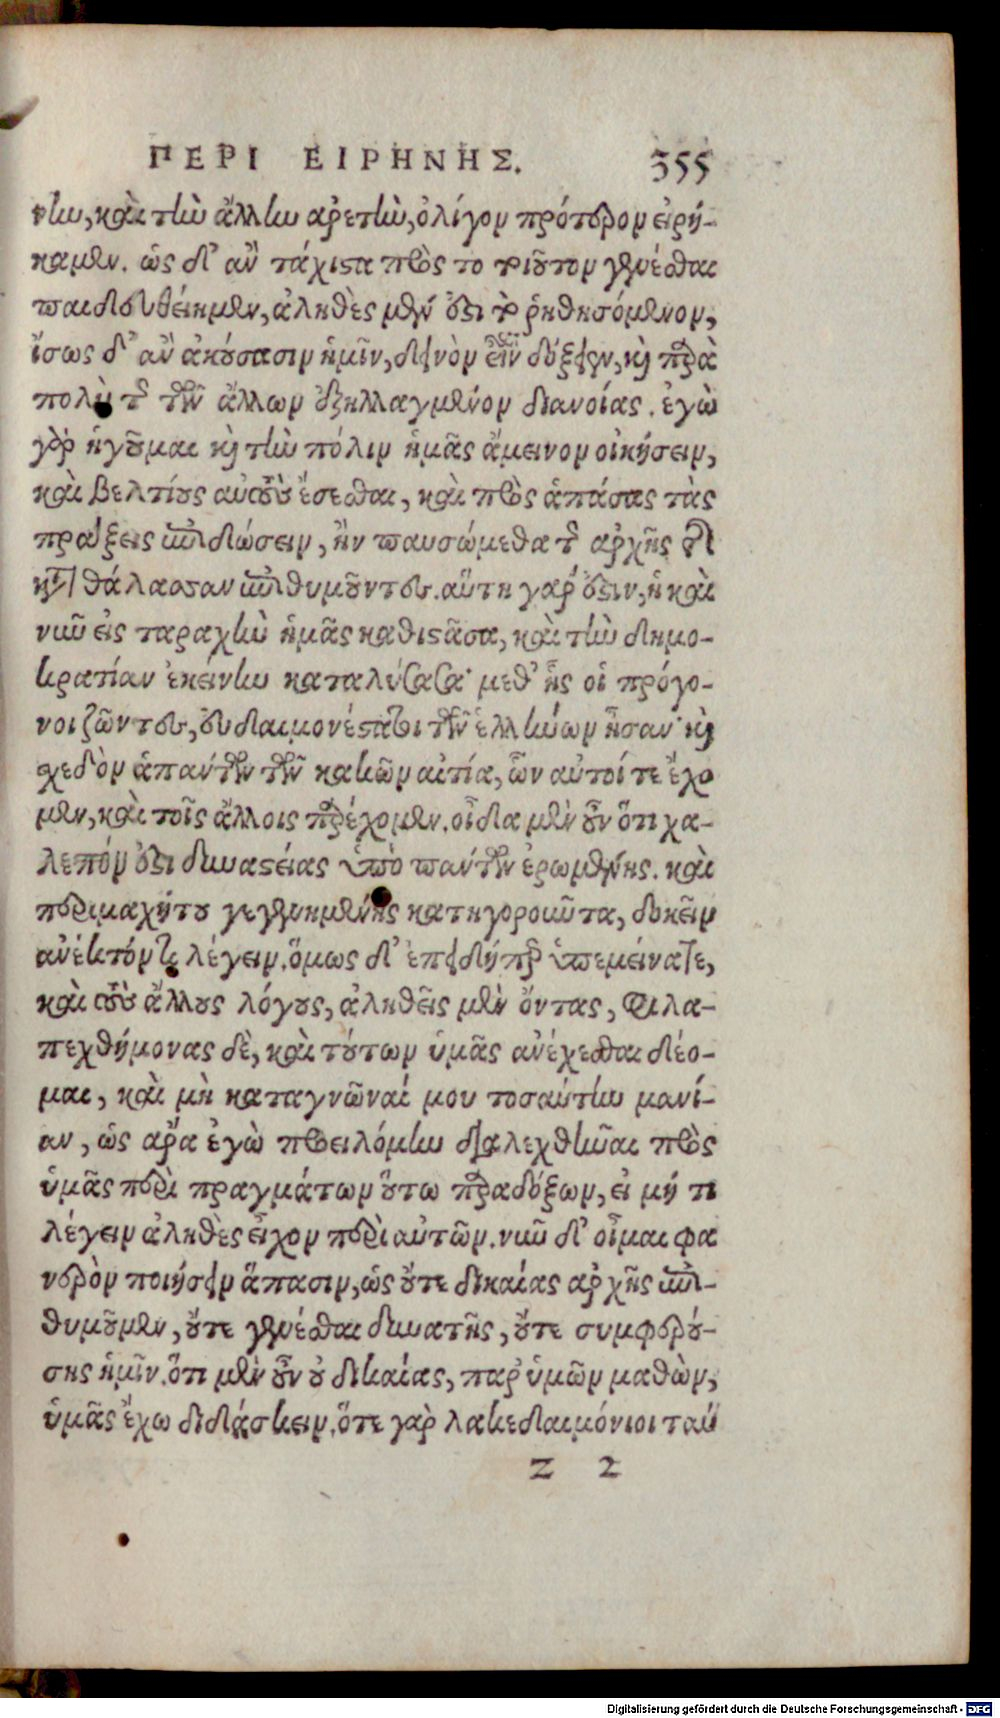 ΠΕΡΙ ΕΙΡΗΝΗΣ. 355
νην, καὶ τὴν ἄλλην ἀρετὴν, ὀλίγον πρότερον εἰρή-
καμεν. ὡς δ' ἂν τάχιστα πρὸς τὸ τοιοῦτον γενέσθαι
παιδευθείημεν, ἀληθὲς μέν ἐστι τὸ ῥηθησόμενον,
ἴσως δ' ἂν ἀκούσασιν ἡμῖν, δεινὸν εἶναι δόξειεν, καὶ παρὰ
πολὺ τῆς τῶν ἄλλων ἐξηλλαγμένον διανοίας. ἐγὼ
γὰρ ἡγοῦμαι καὶ τὴν πόλιν ἡμᾶς ἄμεινον οἰκήσειν,
καὶ βελτίους αὐτοὺς ἔσεσθαι, καὶ πρὸς ἁπάσας τὰς
πράξεις ἐπιδώσειν, ἢν παυσώμεθα τῆς ἀρχῆς τῆς
κατὰ θάλασσαν ἐπιθυμοῦντες. αὕτη γάρ ἐστιν, ἡ καὶ
νῦν εἰς ταραχὴν ἡμᾶς καθιστᾶσα, καὶ τὴν δημο-
κρατίαν ἐκείνην καταλύσασα· μεθ' ἧς οἱ πρόγο-
νοι ζῶντες, εὐδαιμονέστατοι τῶν ἑλλήνων ἦσαν· καὶ
σχεδὸν ἁπάντων τῶν κακῶν αἰτία, ὧν αὐτοί τε ἔχο
μεν, καὶ τοῖς ἄλλοις παρέχομεν. οἶδα μὲν οὖν ὅτι χα-
λεπόν ἐστι δυναστείας ὑπὸ πάντων ἐρωμένης. καὶ
περιμαχήτου γεγενημένης κατηγοροῦντα, δοκεῖν
ἀνεκτόν τι λέγειν. ὅμως δ' ἐπειδήπερ ὑπεμείνατε,
καὶ τοὺς ἄλλους λόγους, ἀληθεῖς μὲν ὄντας, φιλα-
πεχθήμονας δὲ, καὶ τούτων ὑμᾶς ἀνέχεσθαι δέο-
μαι, καὶ μὴ καταγνῶναί μου τοσαύτην μανί-
αν, ὡς ἄρα ἐγὼ προειλόμην διαλεχθῆναι πρὸς
ὑμᾶς περὶ πραγμάτων οὕτω παραδόξων, εἰ μή τι
λέγειν ἀληθὲς εἶχον περὶ αὐτῶν. νῦν δ' οἶμαι φα
νερὸν ποιήσειν ἅπασιν, ὡς οὔτε δικαίας ἀρχῆς ἐπι-
θυμοῦμεν, οὔτε γενέσθαι δυνατῆς, οὔτε συμφερού-
σης ἡμῖν. ὅτι μὲν οὖν οὐ δικαίας, παρ' ὑμῶν μαθὼν,
ὑμᾶς ἔχω διδάσκειν. ὅτε γὰρ λακεδαιμόνιοι ταύ
Z 2
Digitalisierung gefördert durch die Deutsche Forschungsgemeinschaft - DFG